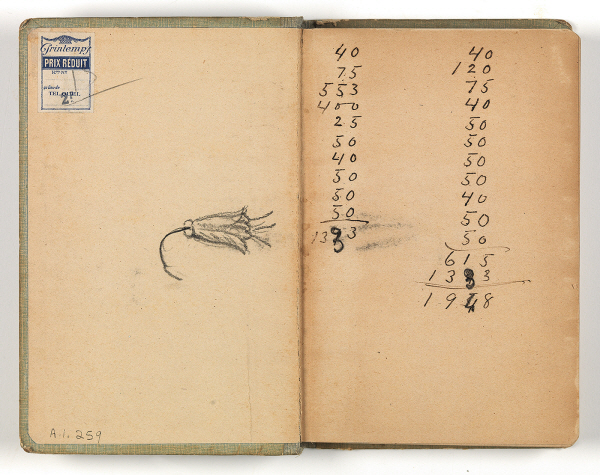 Printemps
PRIX RÉDUIT
TEL QUEL
2
A.1. 259
40
75
553
400
25
50
40
50
50
50
1333
40
120
75
40
50
50
50
50
40
50
50
615
1333
1948